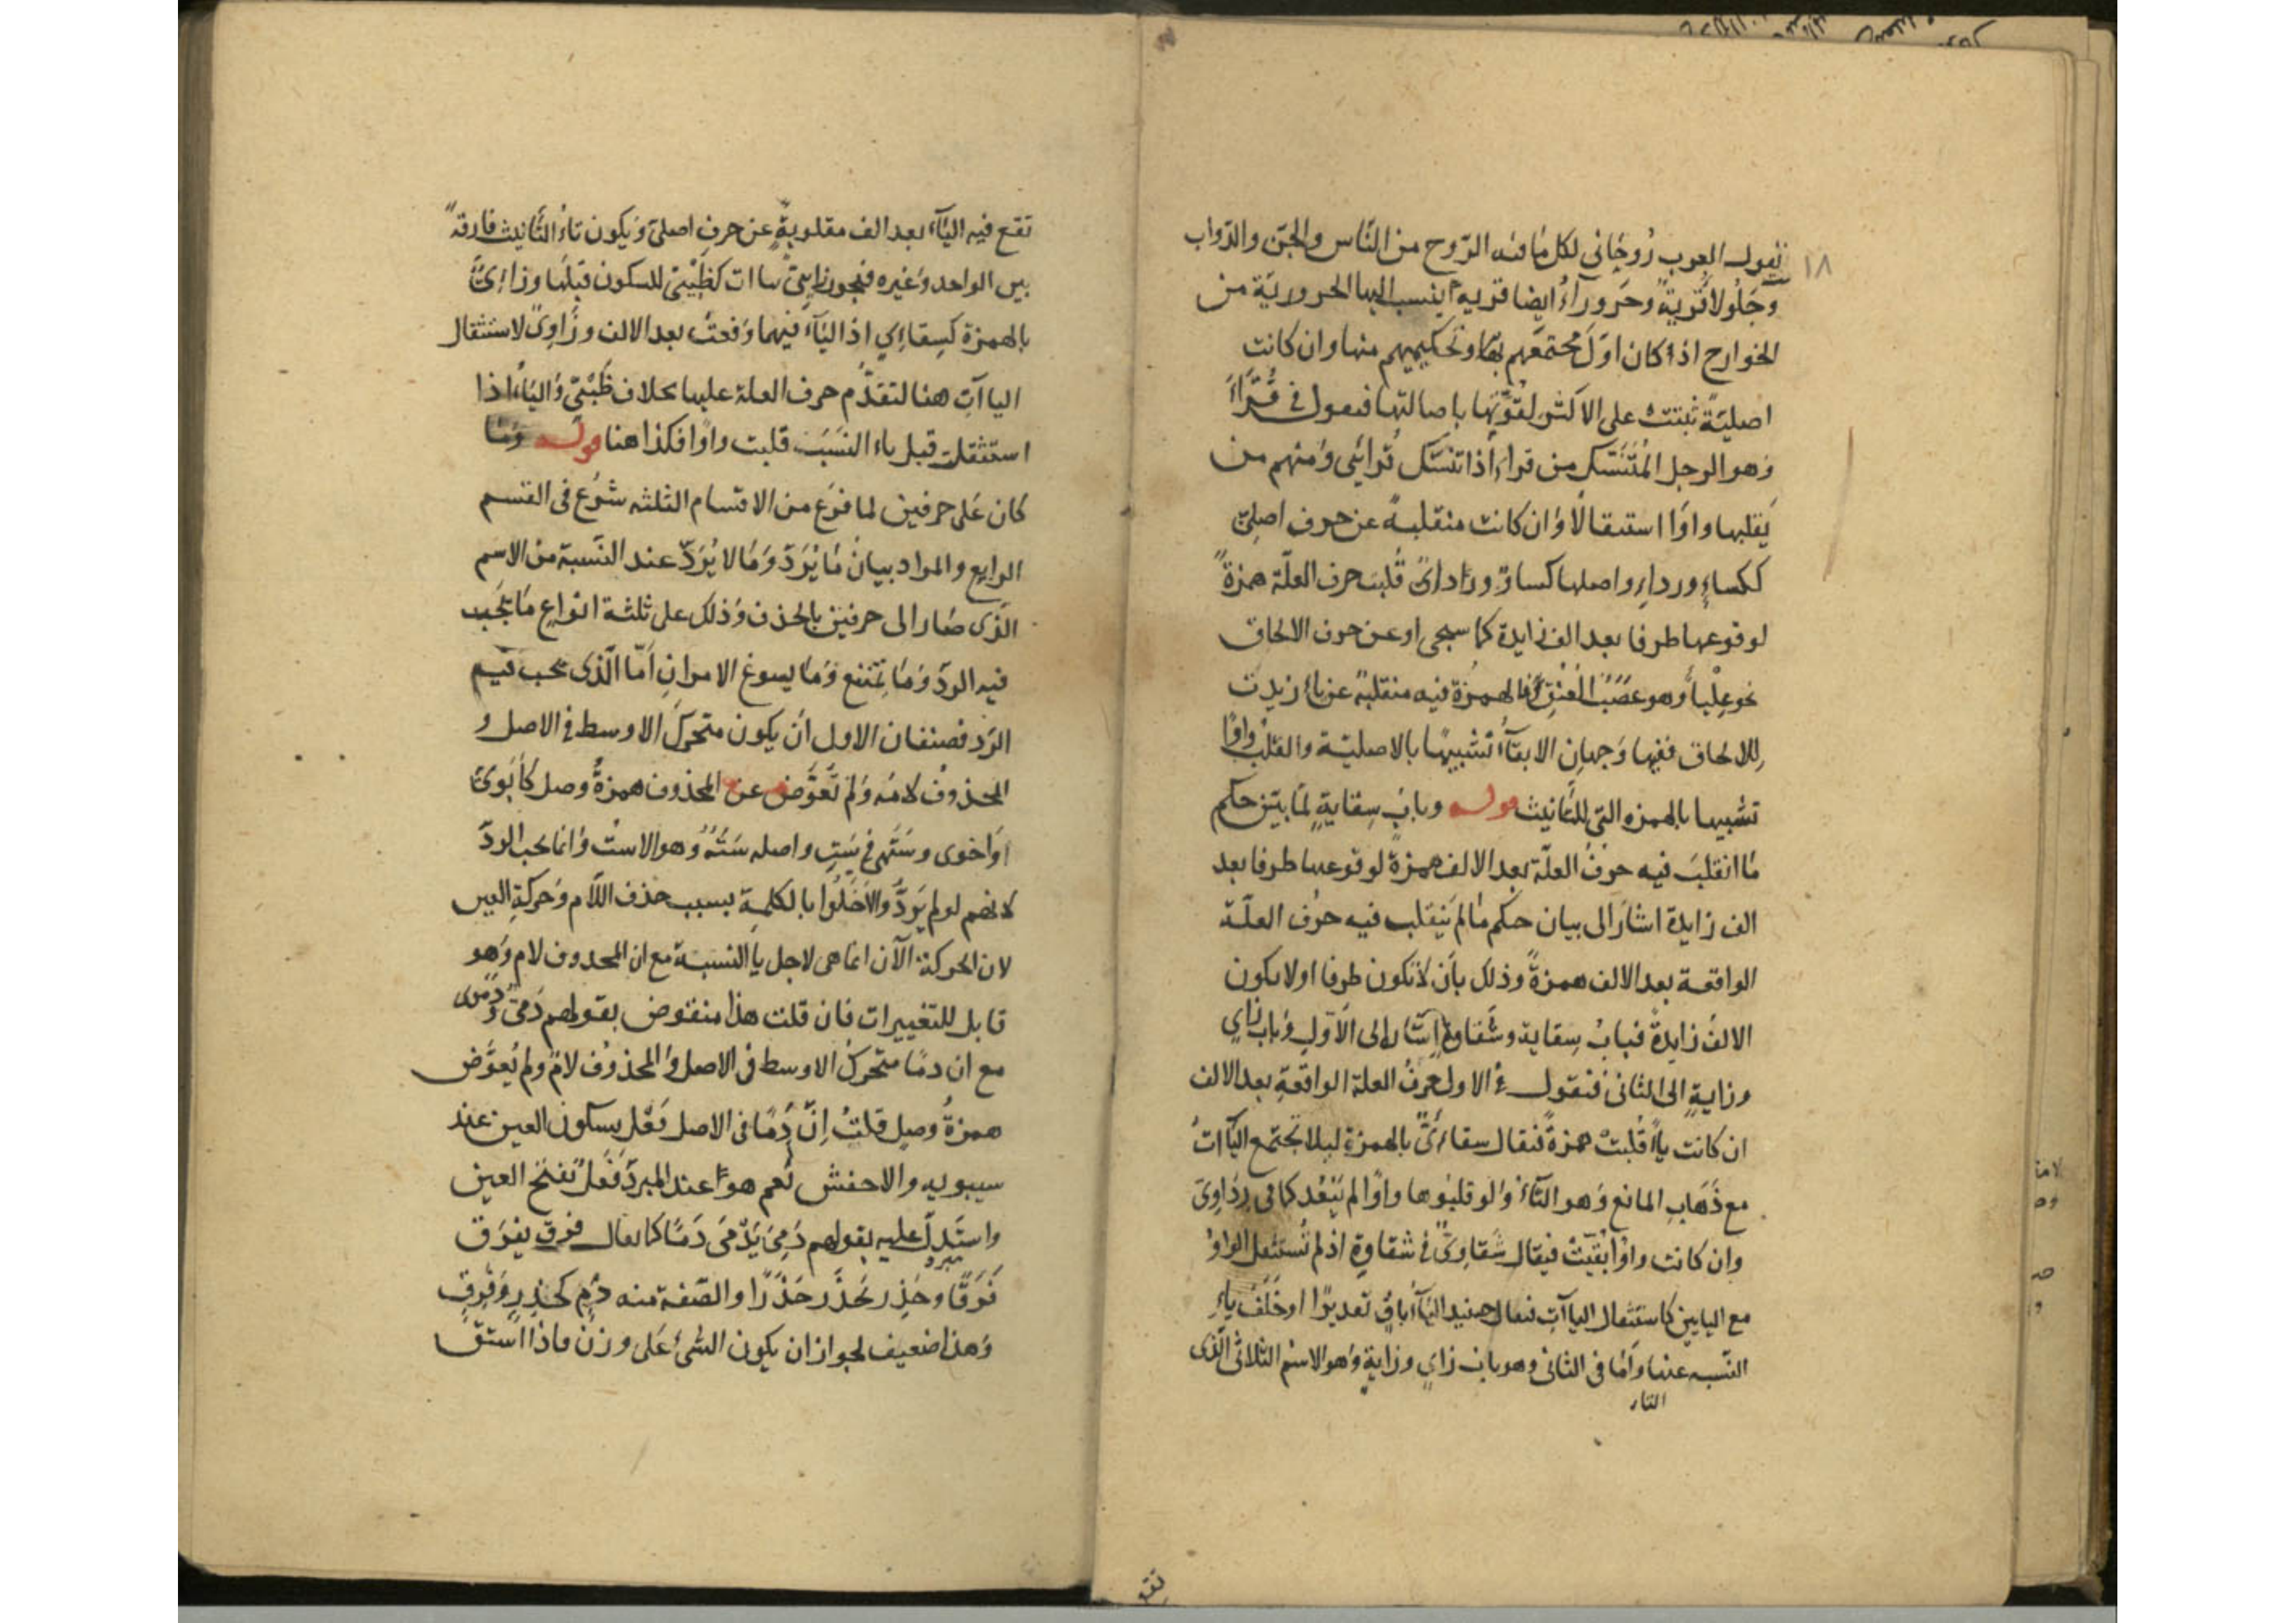 ١٨
تقول العرب رُوحَانى لكل ما فيه الرّوح من النّاس والجنّ والدّواب
وجَلُولا قرية وحَروراءُ ايضا قرية ينسب اليها الحرورية من
الخوارج اذا كان اوّلَ مجتمَعهم بها وتحكيمهم منها وان كانت
اصليّةً ثبتت على الاكثر لقوّتها باصالتها فيقول فى قُرَّاءَ
وهو الرجل المُتَنَسّك من قراء اذا تنسّك قُرائى ومنهم من
يَقلبها واوًا استثقالًا وان كانت منقلبةً عن حرف اصلىّ
ككساءٍ ورداءٍ واصلها كساوٌ ورداىٌ قُلبَت حرف العلّة همزةً
لوقوعها طرفا بعد الف زايدة كما سيجى او عن حرف الالحاق
نحو عِلْباء وهو عصَبُ العُنق فالهمزة فيه منقلبة عن ياء زيدت
للالحاق ففيها وَجهانِ الابقاءُ تشبيهًا بالاصليّة والقلبُ واوًا
تشبيها بالهمزه التى للتأنيث قوله وبابُ سِقايةٍ لمّا بيّن حكم
ما انقلبَ فيه حرفُ العلّة بعد الالف همزةً لوقوعها طرفا بعد
الف زايدة اشار الى بيان حكم ما لم يَنقلب فيه حرُف العلّة
الواقعة بعد الالف همزةً وذلك بأن لا تكون طرفا اولا يكون
الالفُ زايدةً فبابُ سِقاية وشَقاوة اشار الى الاوّلِ وباب زاىٍ
وزايةٍ الى الثانى فنقول فى الاول حرفُ العلة الواقعةِ بعد الالف
ان كانت ياءً قُلبتْ همزةً فيقال سقاءىٌّ بالهمزة ليلا تجتمع الياآتُ
مع ذَهابِ المانع وهو التاءُ ولو قلبُوها واوًا لم يَبْعُد كما فى رِدَاوِىّ
وان كانت واوًا بُقيَتْ فيقال شَقاوِىٌّ فى شقاوةٍ اذ لم تُستثقل الواوُ
مع اليايين كاستثقال الياآتِ فيقال حنيئذ الياء باقٍ تقديرًا او خَلَفُ ياءِ
النّسبه عنها وأمّا فى الثانى وهو باب زاىٍ وزايةٍ وهو الاسْم الثلاثى الّذى
تقع فيه الياء بعد الف مقلوبةٍ عن حرفٍ اصلىّ ويكون تاءُ التّأنيث فارقةً
بين الواحد وغيره فيجوز زايىّ ياات كظَبْيىّ للسكون قبلها وزاءِىٌّ
بالهمزة كسِقاءِي اذ الياء فيهما وَقعتْ بعد الالف وزَاوِىٌّ لاستثقال
الياآتِ هنا لتقدّم حرف العلة عليها بخلاف ظَبْيىّ والياءُ اذا
استثقلت قبل ياء النسَبَ قلبت واوًا فكذا هنا قوله وَما
كان عَلى حرفين لما فرَغ من الاقسام الثلثه شرَع فى القسم
الرابع والمراد بيانُ مَا يُرَدّ وَمَا لا يُرَدّ عند النّسبة من الاسم
الذى صَار الى حرفين بالحذف وَذلك على ثلثة انواعٍ مَا يجَب
فيه الردّ وَمَا يمَتنع وَمَا يسوغ الامرانِ اَمّا الّذى يجب فيه
الرَد فصنفان الاول اَن يكون متحركَ الاوسط فى الاصل و
المحذوفُ لامُه وَلم تُعوَّض عن المحذوف همزةُ وصل كأبَوىّ
اَواخوى وستَهى فى سَتٍ واصله سَتَهٌ وهو الاست وانما يجب الردّ
لانهم لو لم يَرَدّوا لاَخَلّوا بالكلمة بسبب حذف اللاّم وحَركةِ العين
لان الحركة الآن انما هى لاجل يا النسبة مع ان المحدوف لام وَهو
قابل للتغييرات فان قلت هذا منقوض بقولهم دَمىّ ودَموى
مع ان دمًا متحرّكُ الاوسط فى الاصل والمحذوُف لامٌ ولم يُعوَّض
همزةُ وصلٍ قلتُ اِنّ دَمًا فى الاصل فَعْل بسكون العين عند
سيبويه والاخفش نَعم هو عند المبرّد فَعَلٌ بفتح العين
واستَدلّ عليه بقولهم دَمِىَ يَدْمَى دَمًا كما يقال فرِق يفرَق
فَرَقًا وحَذِر يَحْذَر حَذَرًا والصّفة منه دَمٍ كحَذِرٍ وَفَرِقٍ
وَهذا ضعيف لجواز ان يكون الشىءُ عَلى وزن فاذا اشتقّ